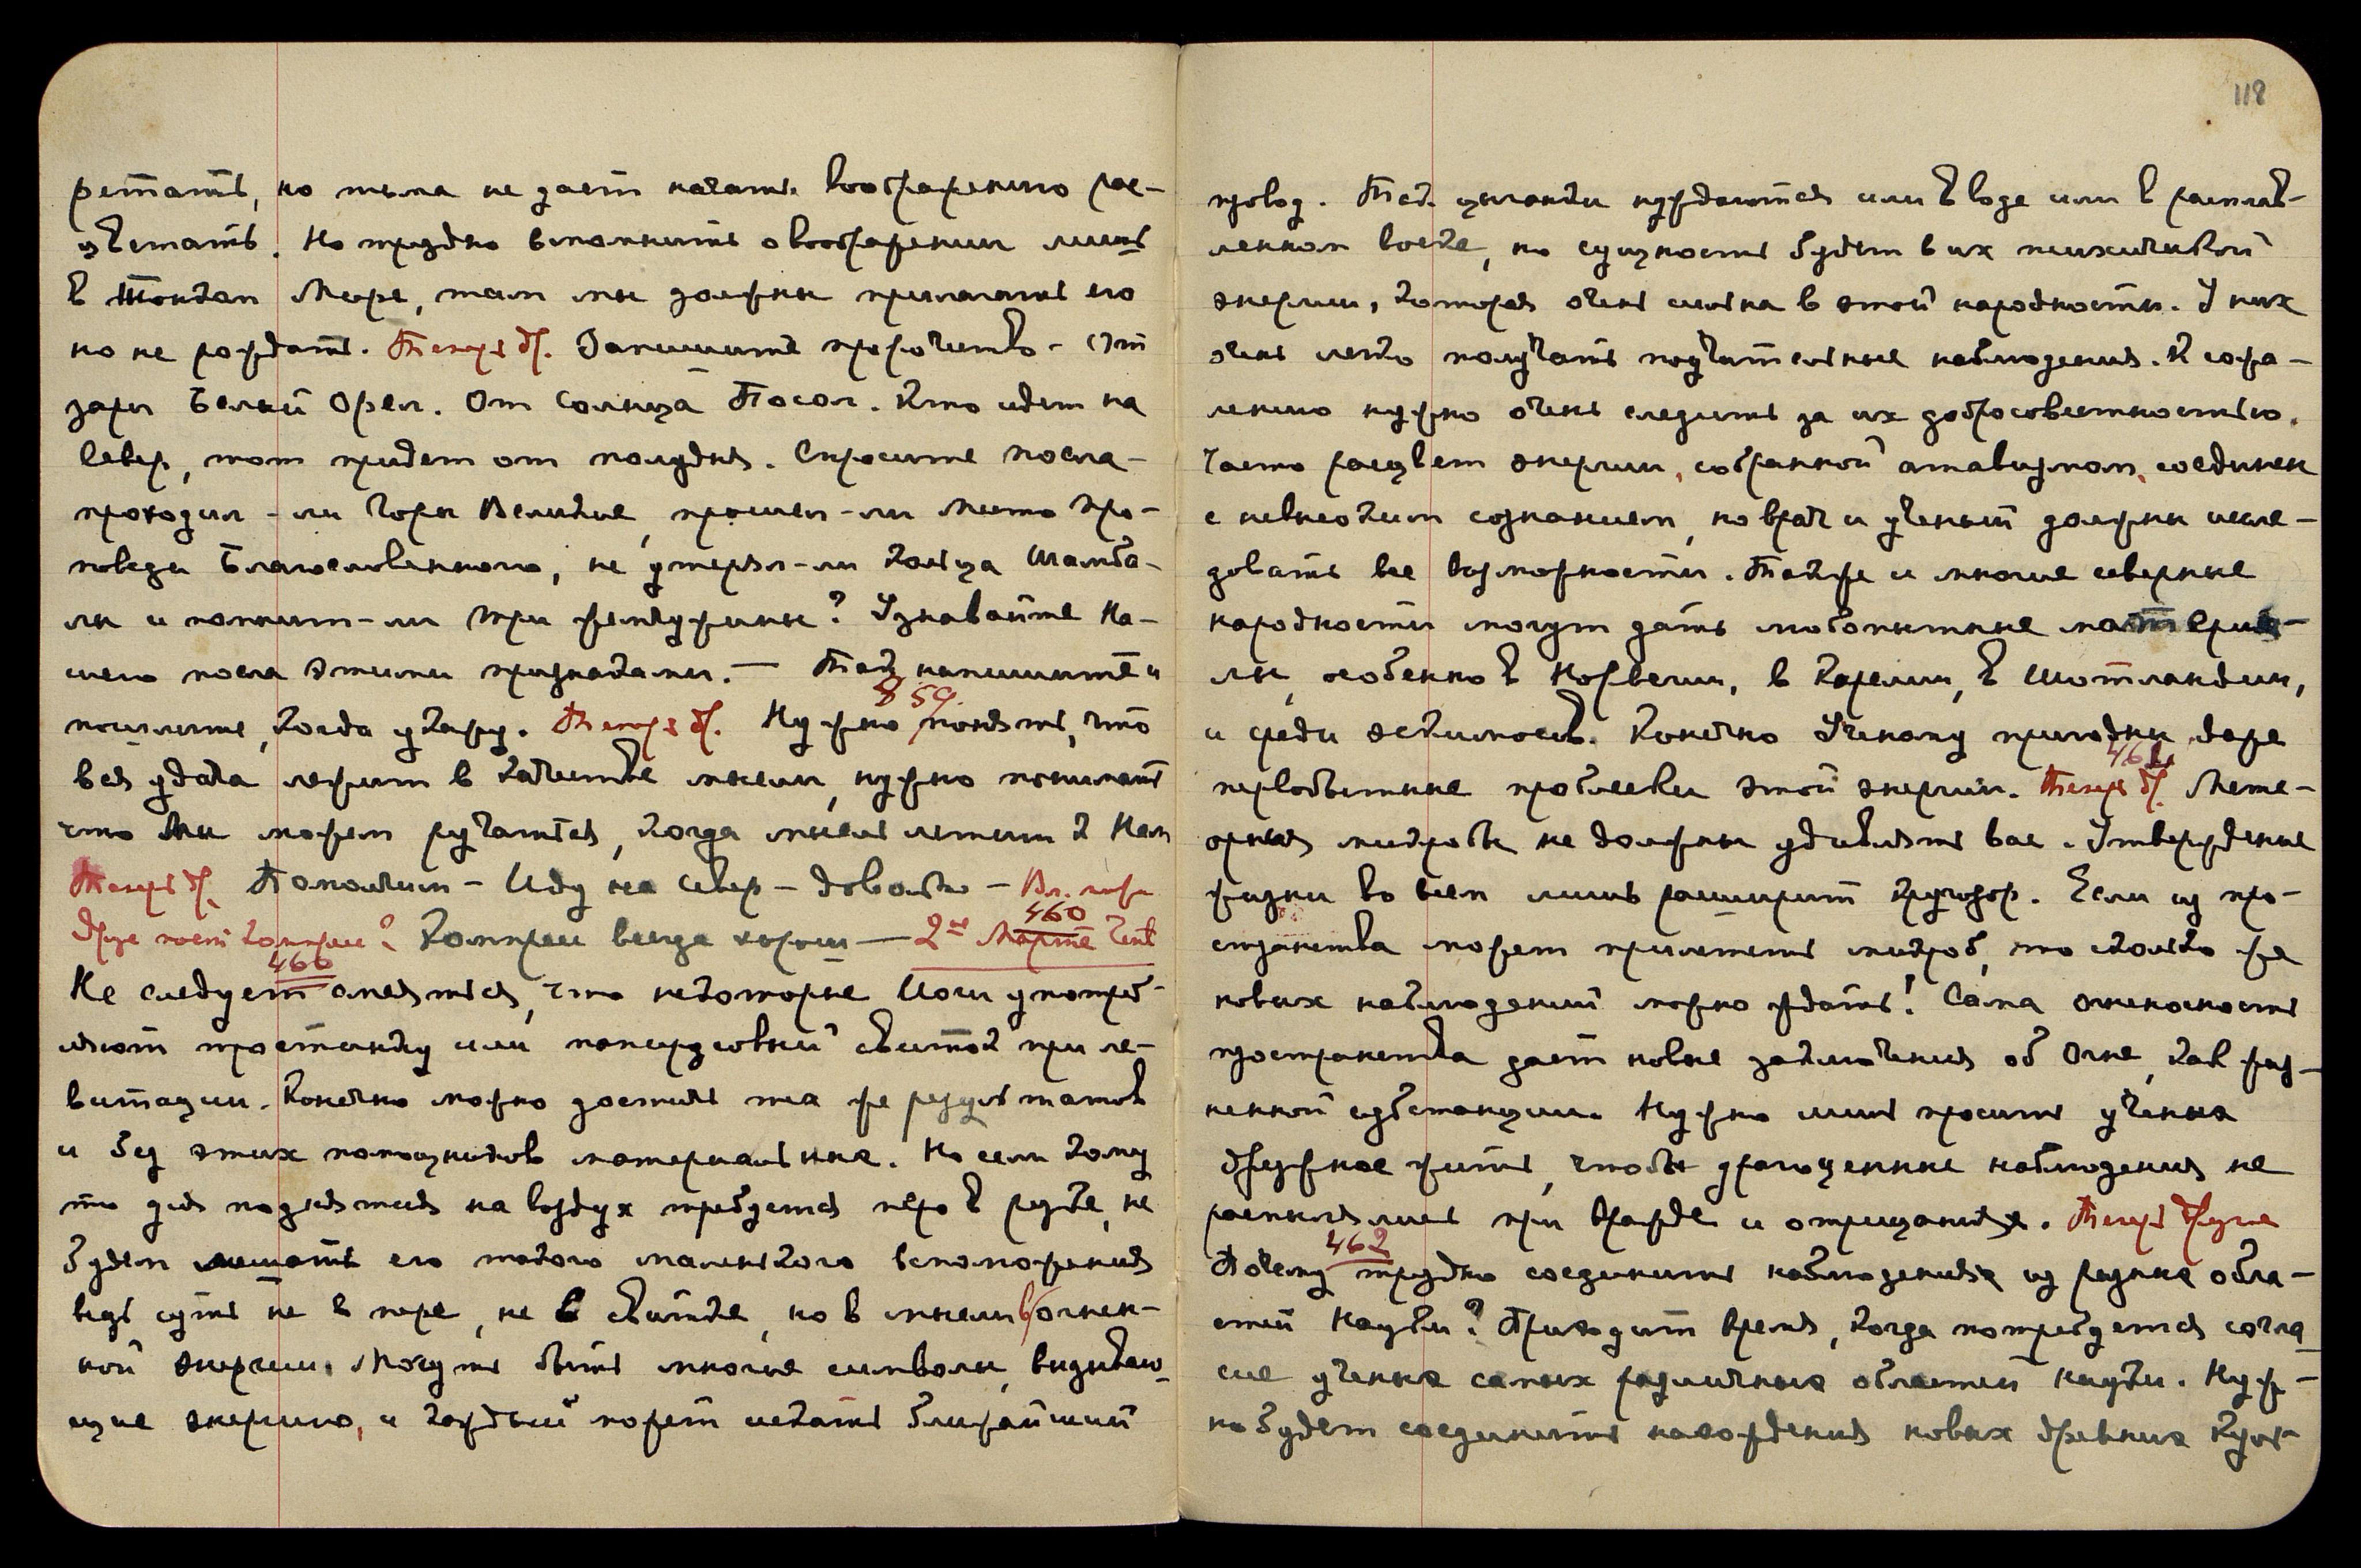 ретать, но тьма не дает начать воображению рас-
цветать. Но трудно вспомнить о воображении лишь
в Тонком Мире, там мы должны прилагать его
но не рождать. Теперь др. Запишите пророчество – От
зари Белый Орел. От Солнца Посол. Кто идет на
север, тот придет от полудня. Спросите посла –
проходил-ли Горы Великие, прошел-ли место про-
поведи Благословенного, не утерял-ли кольца Шамба-
лы и помнит-ли три жемчужины? Узнавайте На-
шего посла этими признаками. – Так напишите и
459
пошлите, когда укажу. Теперь др. Нужно понять, что
вся удача лежит в качестве мысли, нужно понимать
что Мы можем ручаться, когда мысль летит к Нам
Теперь др. Помолчим – Иду на север – довольно –
460
компрес? Компрес всегда хорош — 2ое Марта Четв
460
Не следует смеяться, что некоторые Йоги употреб-
ляют тростинку или папирусовый свиток при ле-
витации. Конечно можно достичь тех же результатов
и без этих помощников материальных. Но если кому
то для поднятия на воздух требуется перо в руке, не
будем лишать его такого маленького вспоможения
ведь суть не в пере, не в свитке, но в мысли в огнен-
ной энергии. Могут быть многие символы, выдвигаю-
щие энергию, и каждый может искать ближайший
118
провод. Так цыганки нуждаются или в воде или в расплав-
ленном воске, но сущность будет в их психической
энергии, которая очень сильна в этой народности. У них
очень легко получать поучительные наблюдения. К сожа-
лению нужно очень следить за их добросовестностью.
Часто расцвет энергии, собранной атавизмом, соединен
с невысоким сознанием, но врач и ученый должны иссле-
довать все возможности. Также и многие северные
народности могут дать любопытные материа-
лы, особенно в Норвегии, в Карелии, в Шотландии,
и среди эскимосов. Конечно Ученому пригодны даже
461
первобытные проблески этой энергии. Теперь др. Мете-
орные микробы не должны удивлять вас. Утверждение
жизни во всем лишь расширит кругозор. Если из про-
странства может прилететь микроб, то сколько же
новых наблюдений можно ждать! Сама огненность
пространства дает новые заключения об Огне, как жиз-
ненной субстанции. Нужно лишь просить ученых
дружнее жить, чтобы драгоценные наблюдения не
распылялись при вражде и отрицаниях. Теперь другое
462
Почему трудно соединить наблюдения из разных обла-
стей Науки? Приходит время, когда потребуется согла
сие ученых самых различных областей науки. Нуж-
но будет соединить нахождения новых древних куль-